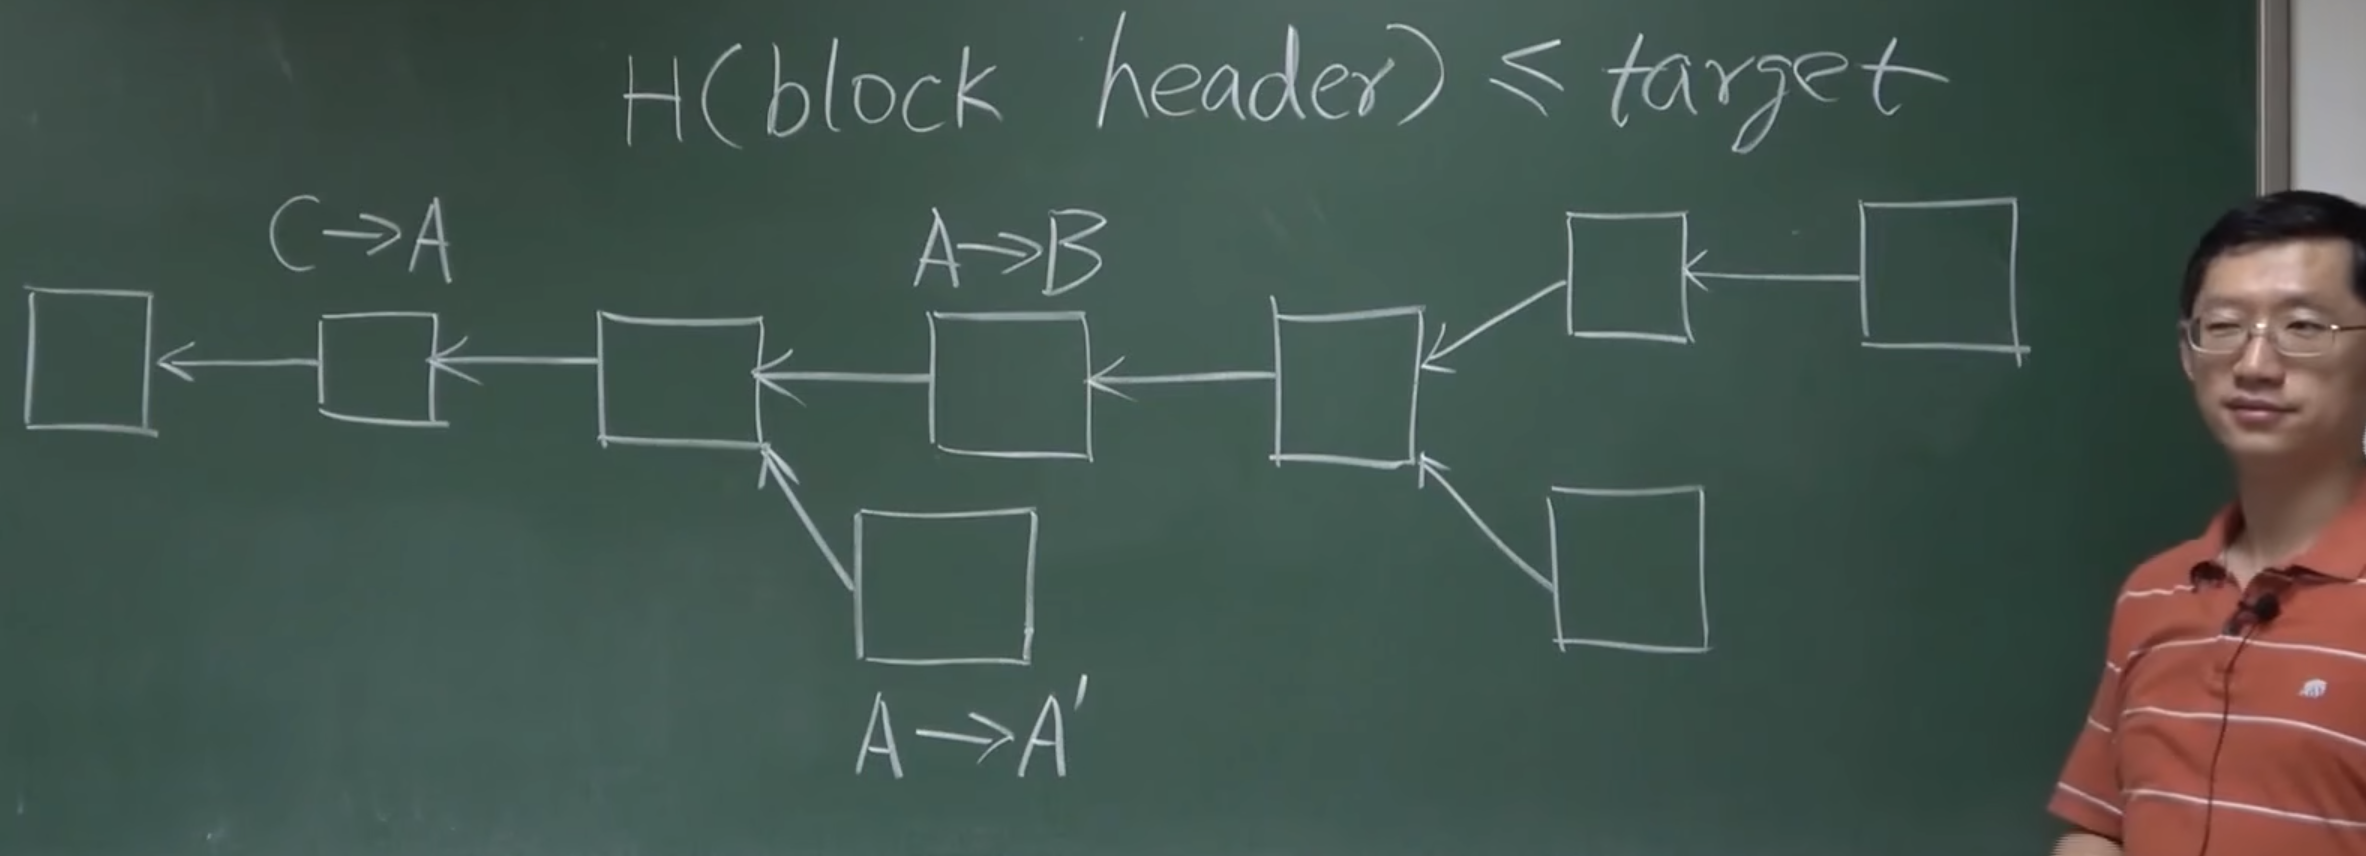 H(block header) ≤ target
C→A
A→B
A→A'